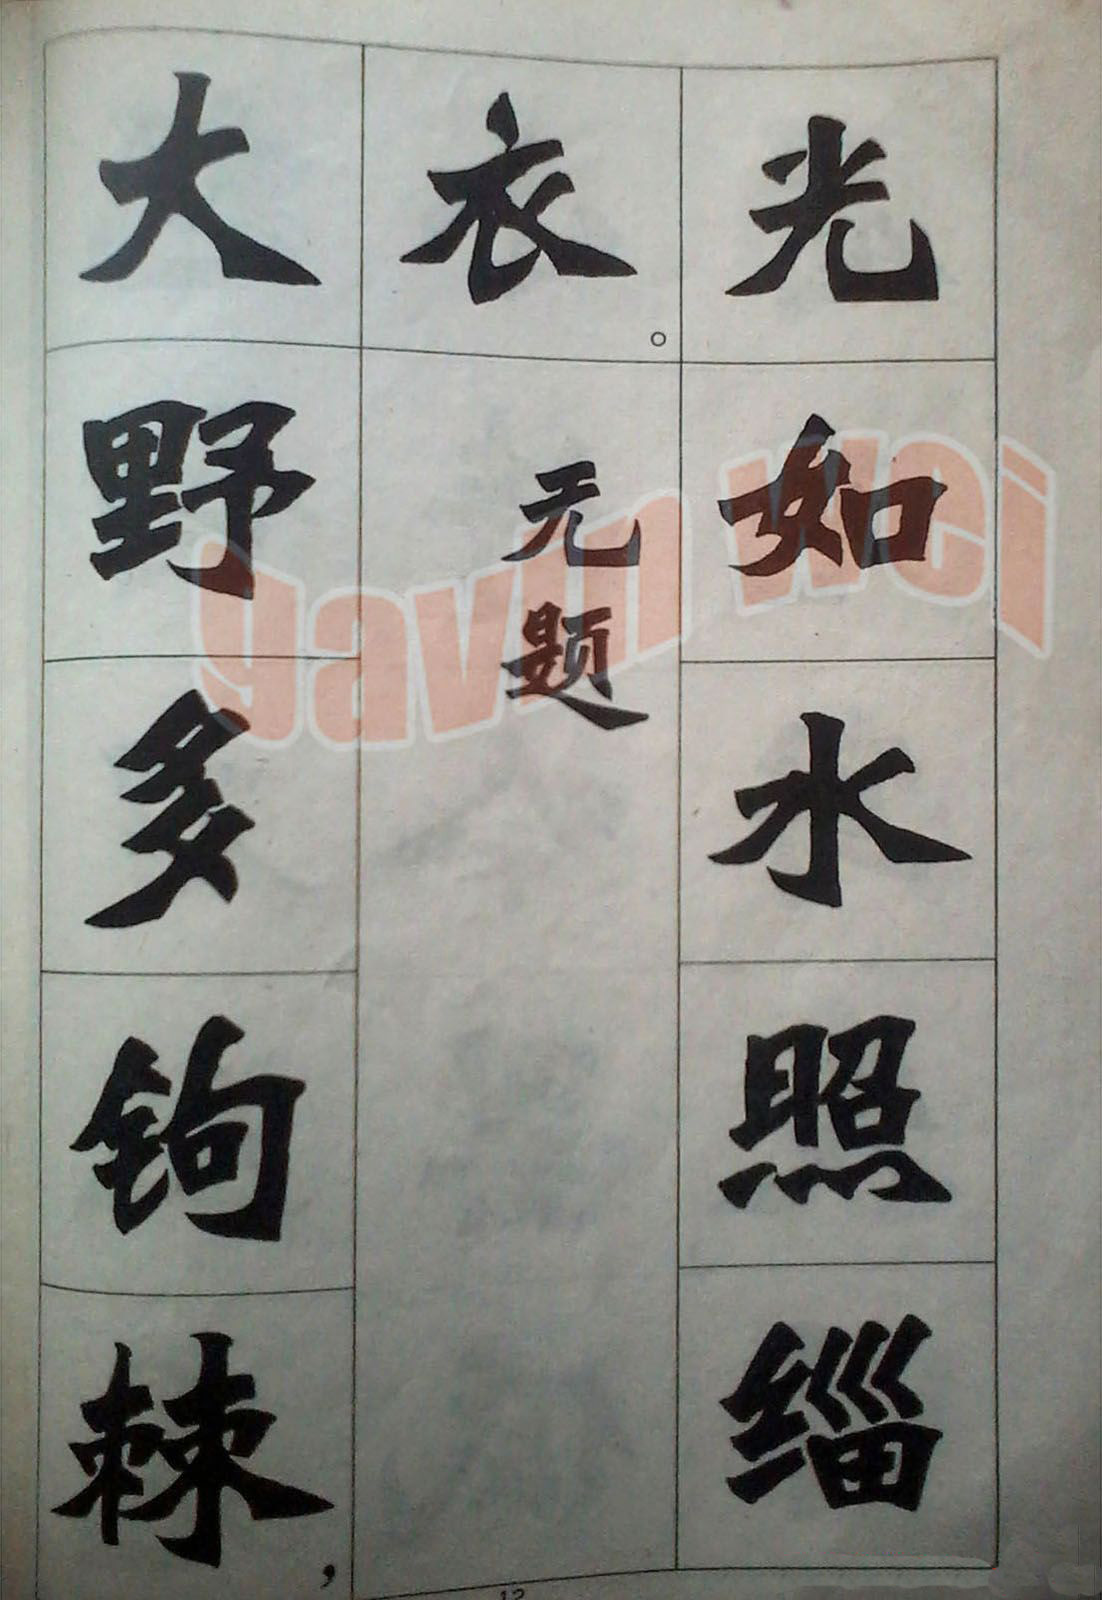 光如水照缁
衣。
无题
大野多钩棘，
12
yavin wei